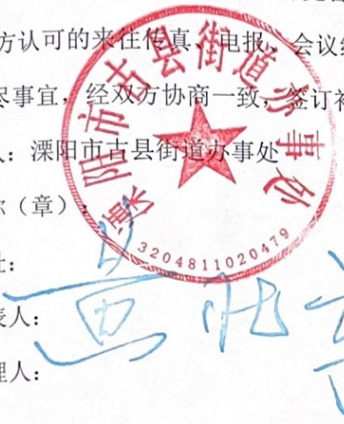 方认可的来往传真、电报、会议纟
尽事宜，经双方协商一致，签订补
人：溧阳市古县街道办事处
尔（章）：
止：
表人：
理人：
溧阳市古县街道办事处
3204811020479